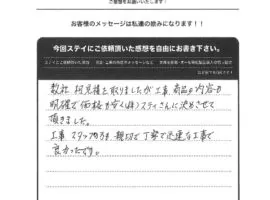 お客様のメッセージは私達の励みになります！！
今回ステイにご依頼頂いた感想を自由にお書き下さい。
数社 相見積を取りましたが 工事、商品の内容が
明確で価格も安く(株)ステイさんに決めさせて
頂きました。
工事スタッフの方も親切で丁寧で迅速な工事で
良かったです。